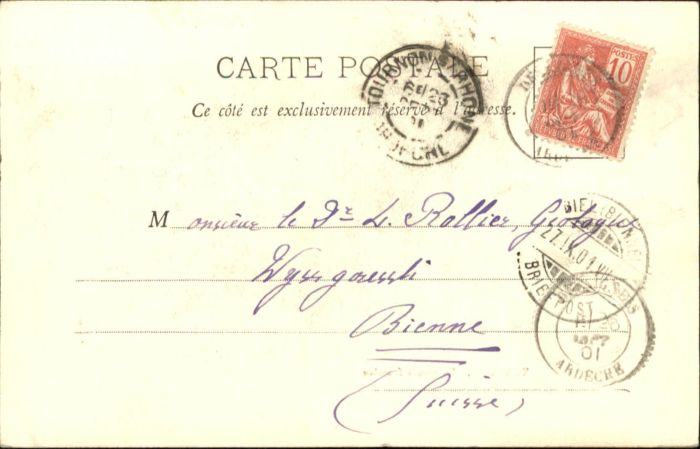 CARTE POSTALE
Ce côté est exclusivement réservé à l'adresse.
POSTES
10
TOURNON-S-RHONE
ARDECHE
Monsieur le Dr L. Rollier, Géologue
Wyssgaessli
Bienne
(Suisse)
BIEL (BIENNE)
27.IX.01
BRIEFPOST
26
01
ARDECHE